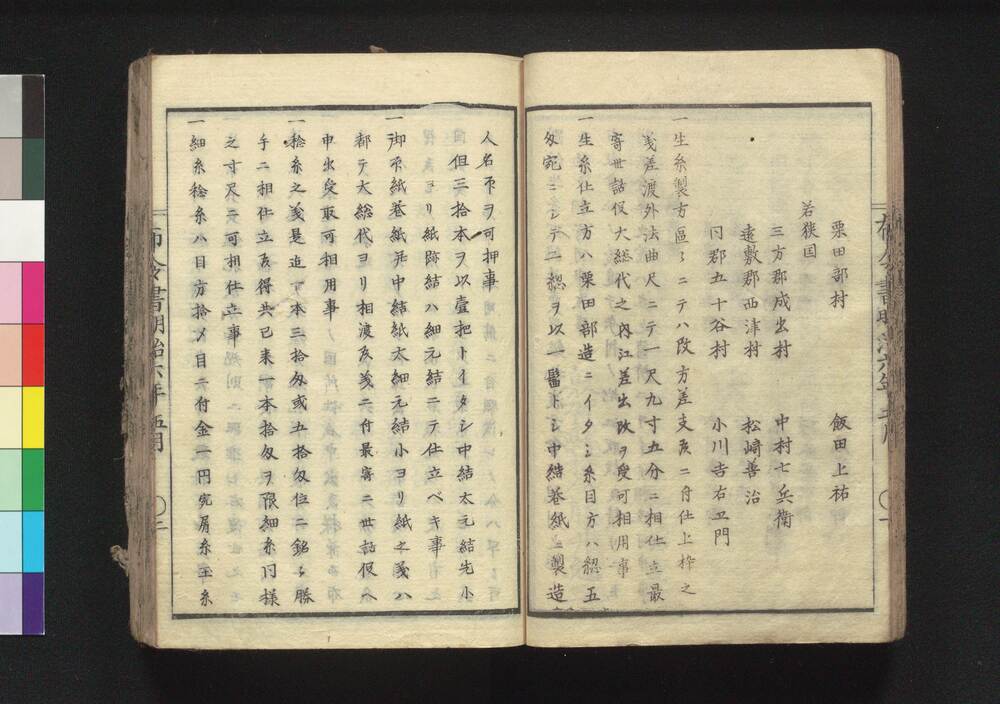 栗田部村　飯田上祐
若狭国
三方郡成出村　中村七兵衛
遠敷郡西津村　松崎善治
同郡五十谷村　小川吉右ヱ門
一生糸製方區々ニテハ改方差支候ニ付仕上枠之
義差渡外法曲尺ニテ一尺九寸五分ニ相仕立最
寄世話役大総代之内江差出改ヲ受可相用事
一生糸仕立方ハ栗田部造ニイタシ糸目方ハ綛五
匁宛ニシテ二綛ヲ以一髷トシ中結巻紙ニ製造
布令書明治六年五月　〇一
人名印ヲ可押事
但三拾本ヲ以壹把トイタシ中結太元結先小
一御印紙巻紙并中結紙太細元結小ヨリ紙之義ハ
都テ大総代ヨリ相渡候義ニ付最寄ニ世話役ヘ
申出受取可相用事
一稔糸之義是迄一本三拾匁或五拾匁位ニ銘々勝
手ニ相仕立候得共已来一本拾匁ヲ限細糸同様
之寸尺ニ可相仕立事
一細糸稔糸ハ目方拾〆目ニ付金一円宛屑糸玉糸
布令書明治六年五月　〇二